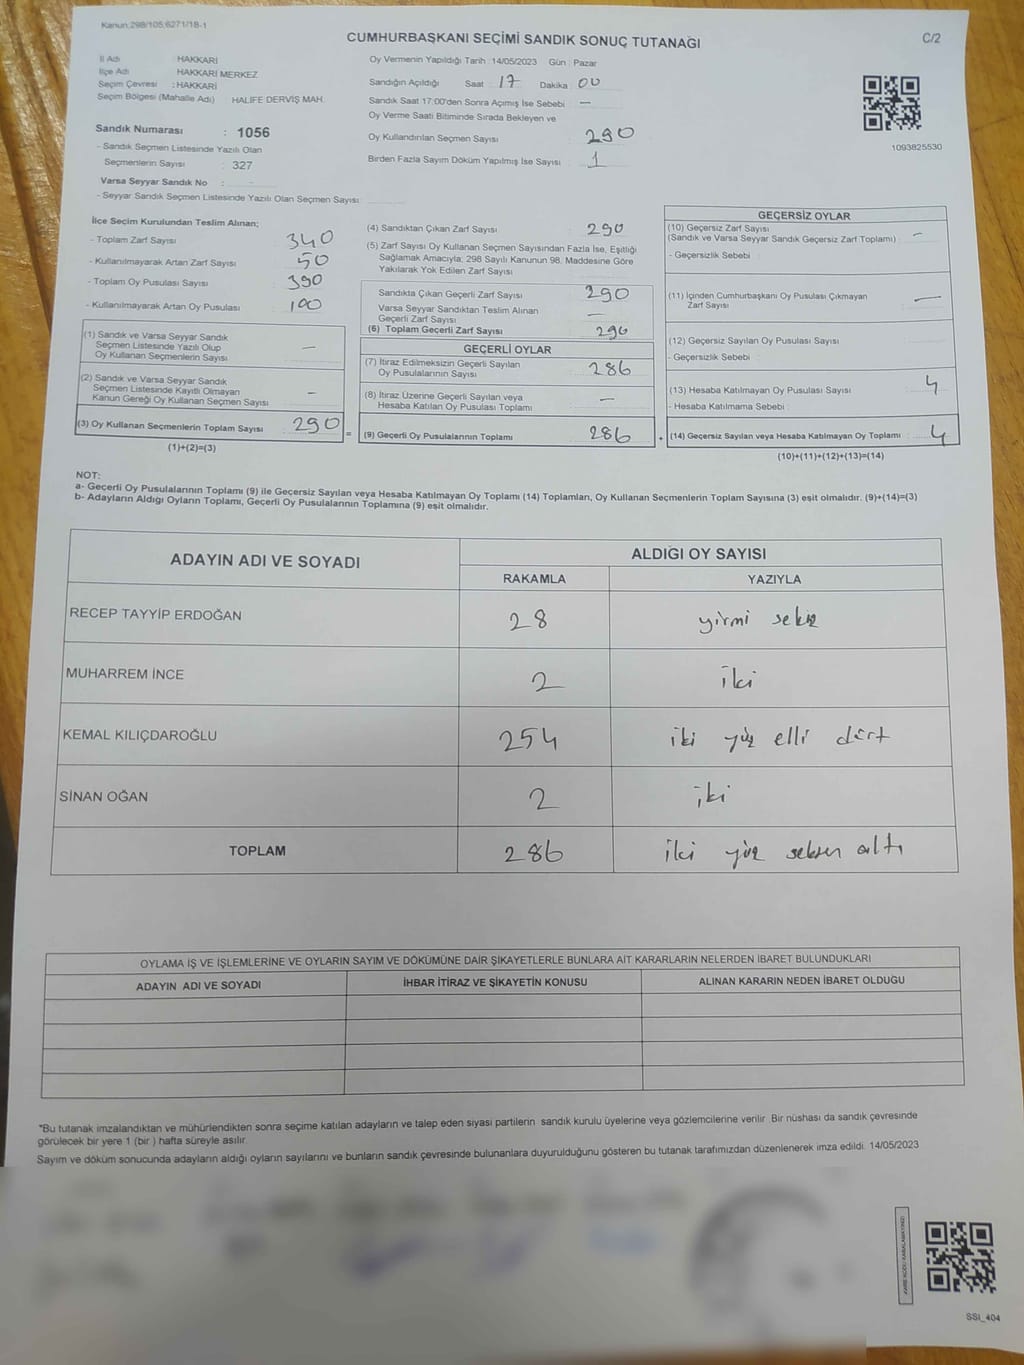 Kanun:298/105;6271/18-1
C/2
CUMHURBAŞKANI SEÇİMİ SANDIK SONUÇ TUTANAĞI
İl Adı : HAKKARİ
İlçe Adı HAKKARİ MERKEZ
Seçim Çevresi : HAKKARİ
Seçim Bölgesi (Mahalle Adı) : HALİFE DERVİŞ MAH.
Sandık Numarası : 1056
- Sandık Seçmen Listesinde Yazılı Olan
Seçmenlerin Sayısı : 327
Varsa Seyyar Sandık No :
- Seyyar Sandık Seçmen Listesinde Yazılı Olan Seçmen Sayısı:
Oy Vermenin Yapıldığı Tarih : 14/05/2023 Gün : Pazar
Sandığın Açıldığı Saat : 17 Dakika : 00
Sandık Saat 17:00'den Sonra Açımış İse Sebebi : —
Oy Verme Saati Bitiminde Sırada Bekleyen ve
Oy Kullandırılan Seçmen Sayısı : 290
Birden Fazla Sayım Döküm Yapılmış İse Sayısı : 1
1093825530
İlçe Seçim Kurulundan Teslim Alınan;
- Toplam Zarf Sayısı : 340
- Kullanılmayarak Artan Zarf Sayısı : 50
- Toplam Oy Pusulası Sayısı : 390
- Kullanılmayarak Artan Oy Pusulası : 100
(1) Sandık ve Varsa Seyyar Sandık
Seçmen Listesinde Yazılı Olup
Oy Kullanan Seçmenlerin Sayısı : —
(2) Sandık ve Varsa Seyyar Sandık
Seçmen Listesinde Kayıtlı Olmayan
Kanun Gereği Oy Kullanan Seçmen Sayısı : —
(3) Oy Kullanan Seçmenlerin Toplam Sayısı : 290
(1)+(2)=(3)
(4) Sandıktan Çıkan Zarf Sayısı : 290
(5) Zarf Sayısı Oy Kullanan Seçmen Sayısından Fazla İse, Eşitliği
Sağlamak Amacıyla; 298 Sayılı Kanunun 98. Maddesine Göre
Yakılarak Yok Edilen Zarf Sayısı :
Sandıkta Çıkan Geçerli Zarf Sayısı : 290
Varsa Seyyar Sandıktan Teslim Alınan
Geçerli Zarf Sayısı : —
(6) Toplam Geçerli Zarf Sayısı : 290
GEÇERLİ OYLAR
(7) İtiraz Edilmeksizin Geçerli Sayılan
Oy Pusulalarının Sayısı : 286
(8) İtiraz Üzerine Geçerli Sayılan veya
Hesaba Katılan Oy Pusulası Toplamı : —
= (9) Geçerli Oy Pusulalarının Toplamı : 286
GEÇERSİZ OYLAR
(10) Geçersiz Zarf Sayısı
(Sandık ve Varsa Seyyar Sandık Geçersiz Zarf Toplamı) : —
- Geçersizlik Sebebi :
(11) İçinden Cumhurbaşkanı Oy Pusulası Çıkmayan
Zarf Sayısı : —
(12) Geçersiz Sayılan Oy Pusulası Sayısı :
- Geçersizlik Sebebi :
(13) Hesaba Katılmayan Oy Pusulası Sayısı : 4
- Hesaba Katılmama Sebebi :
+ (14) Geçersiz Sayılan veya Hesaba Katılmayan Oy Toplamı : 4
(10)+(11)+(12)+(13)=(14)
NOT:
a- Geçerli Oy Pusulalarının Toplamı (9) ile Geçersiz Sayılan veya Hesaba Katılmayan Oy Toplamı (14) Toplamları, Oy Kullanan Seçmenlerin Toplam Sayısına (3) eşit olmalıdır. (9)+(14)=(3)
b- Adayların Aldığı Oyların Toplamı, Geçerli Oy Pusulalarının Toplamına (9) eşit olmalıdır.
ADAYIN ADI VE SOYADI ALDIĞI OY SAYISI
RAKAMLA YAZIYLA
RECEP TAYYİP ERDOĞAN 28 yirmi sekiz
MUHARREM İNCE 2 iki
KEMAL KILIÇDAROĞLU 254 iki yüz elli dört
SİNAN OĞAN 2 iki
TOPLAM 286 iki yüz seksen altı
OYLAMA İŞ VE İŞLEMLERİNE VE OYLARIN SAYIM VE DÖKÜMÜNE DAİR ŞİKAYETLERLE BUNLARA AİT KARARLARIN NELERDEN İBARET BULUNDUKLARI
ADAYIN ADI VE SOYADI İHBAR İTİRAZ VE ŞİKAYETİN KONUSU ALINAN KARARIN NEDEN İBARET OLDUĞU
"Bu tutanak imzalandıktan ve mühürlendikten sonra seçime katılan adayların ve talep eden siyasi partilerin sandık kurulu üyelerine veya gözlemcilerine verilir. Bir nüshası da sandık çevresinde
görülecek bir yere 1 (bir ) hafta süreyle asılır.
Sayım ve döküm sonucunda adayların aldığı oyların sayılarını ve bunların sandık çevresinde bulunanlara duyurulduğunu gösteren bu tutanak tarafımızdan düzenlenerek imza edildi. 14/05/2023
KARE KODU KARALAMAYINIZ!
SSI_404